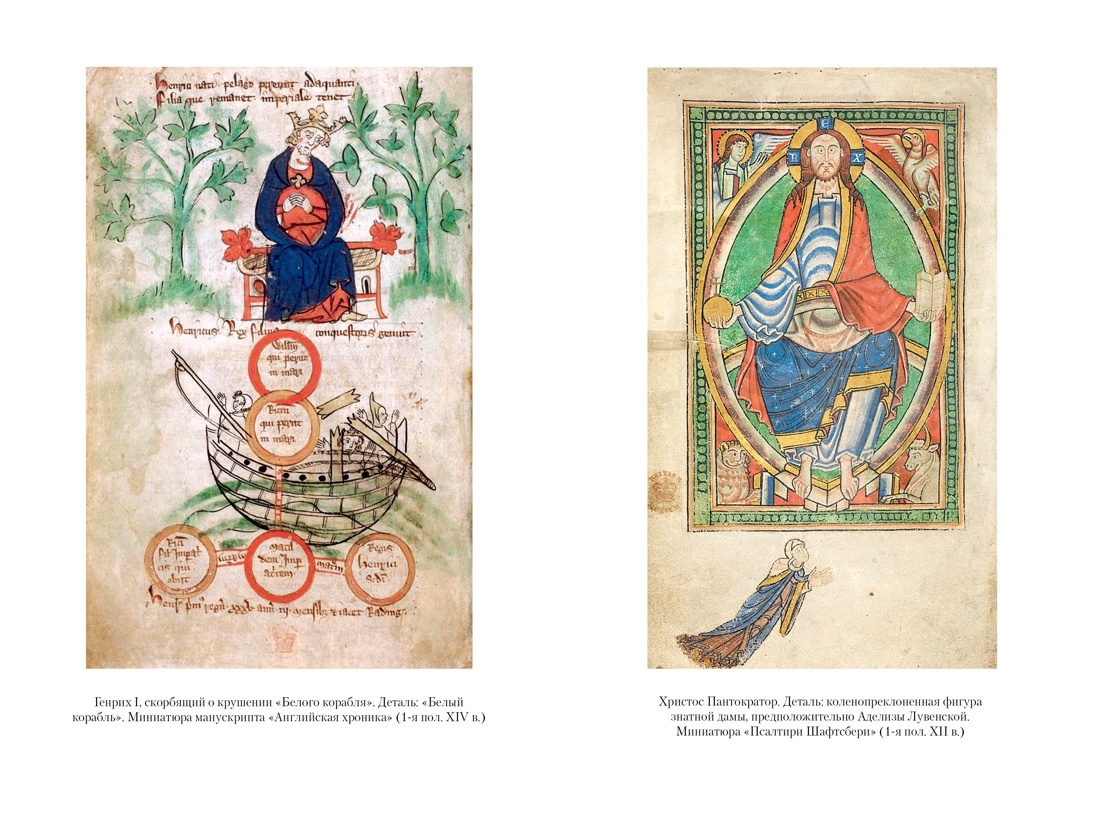 Henrici nati pelago perierunt adaquati
Filia que remanet imperiale tenet
Henricus Rex filius conquestoris genuit
qui periit
in mari
Ricus
qui periit
in mari
cis qui
abiit
Regis
henrici
E
R X
Генрих I, скорбящий о крушении «Белого корабля». Деталь: «Белый
корабль». Миниатюра манускрипта «Английская хроника» (1-я пол. XIV в.)
Христос Пантократор. Деталь: коленопреклоненная фигура
знатной дамы, предположительно Аделизы Лувенской.
Миниатюра «Псалтири Шафтсбери» (1-я пол. XII в.)